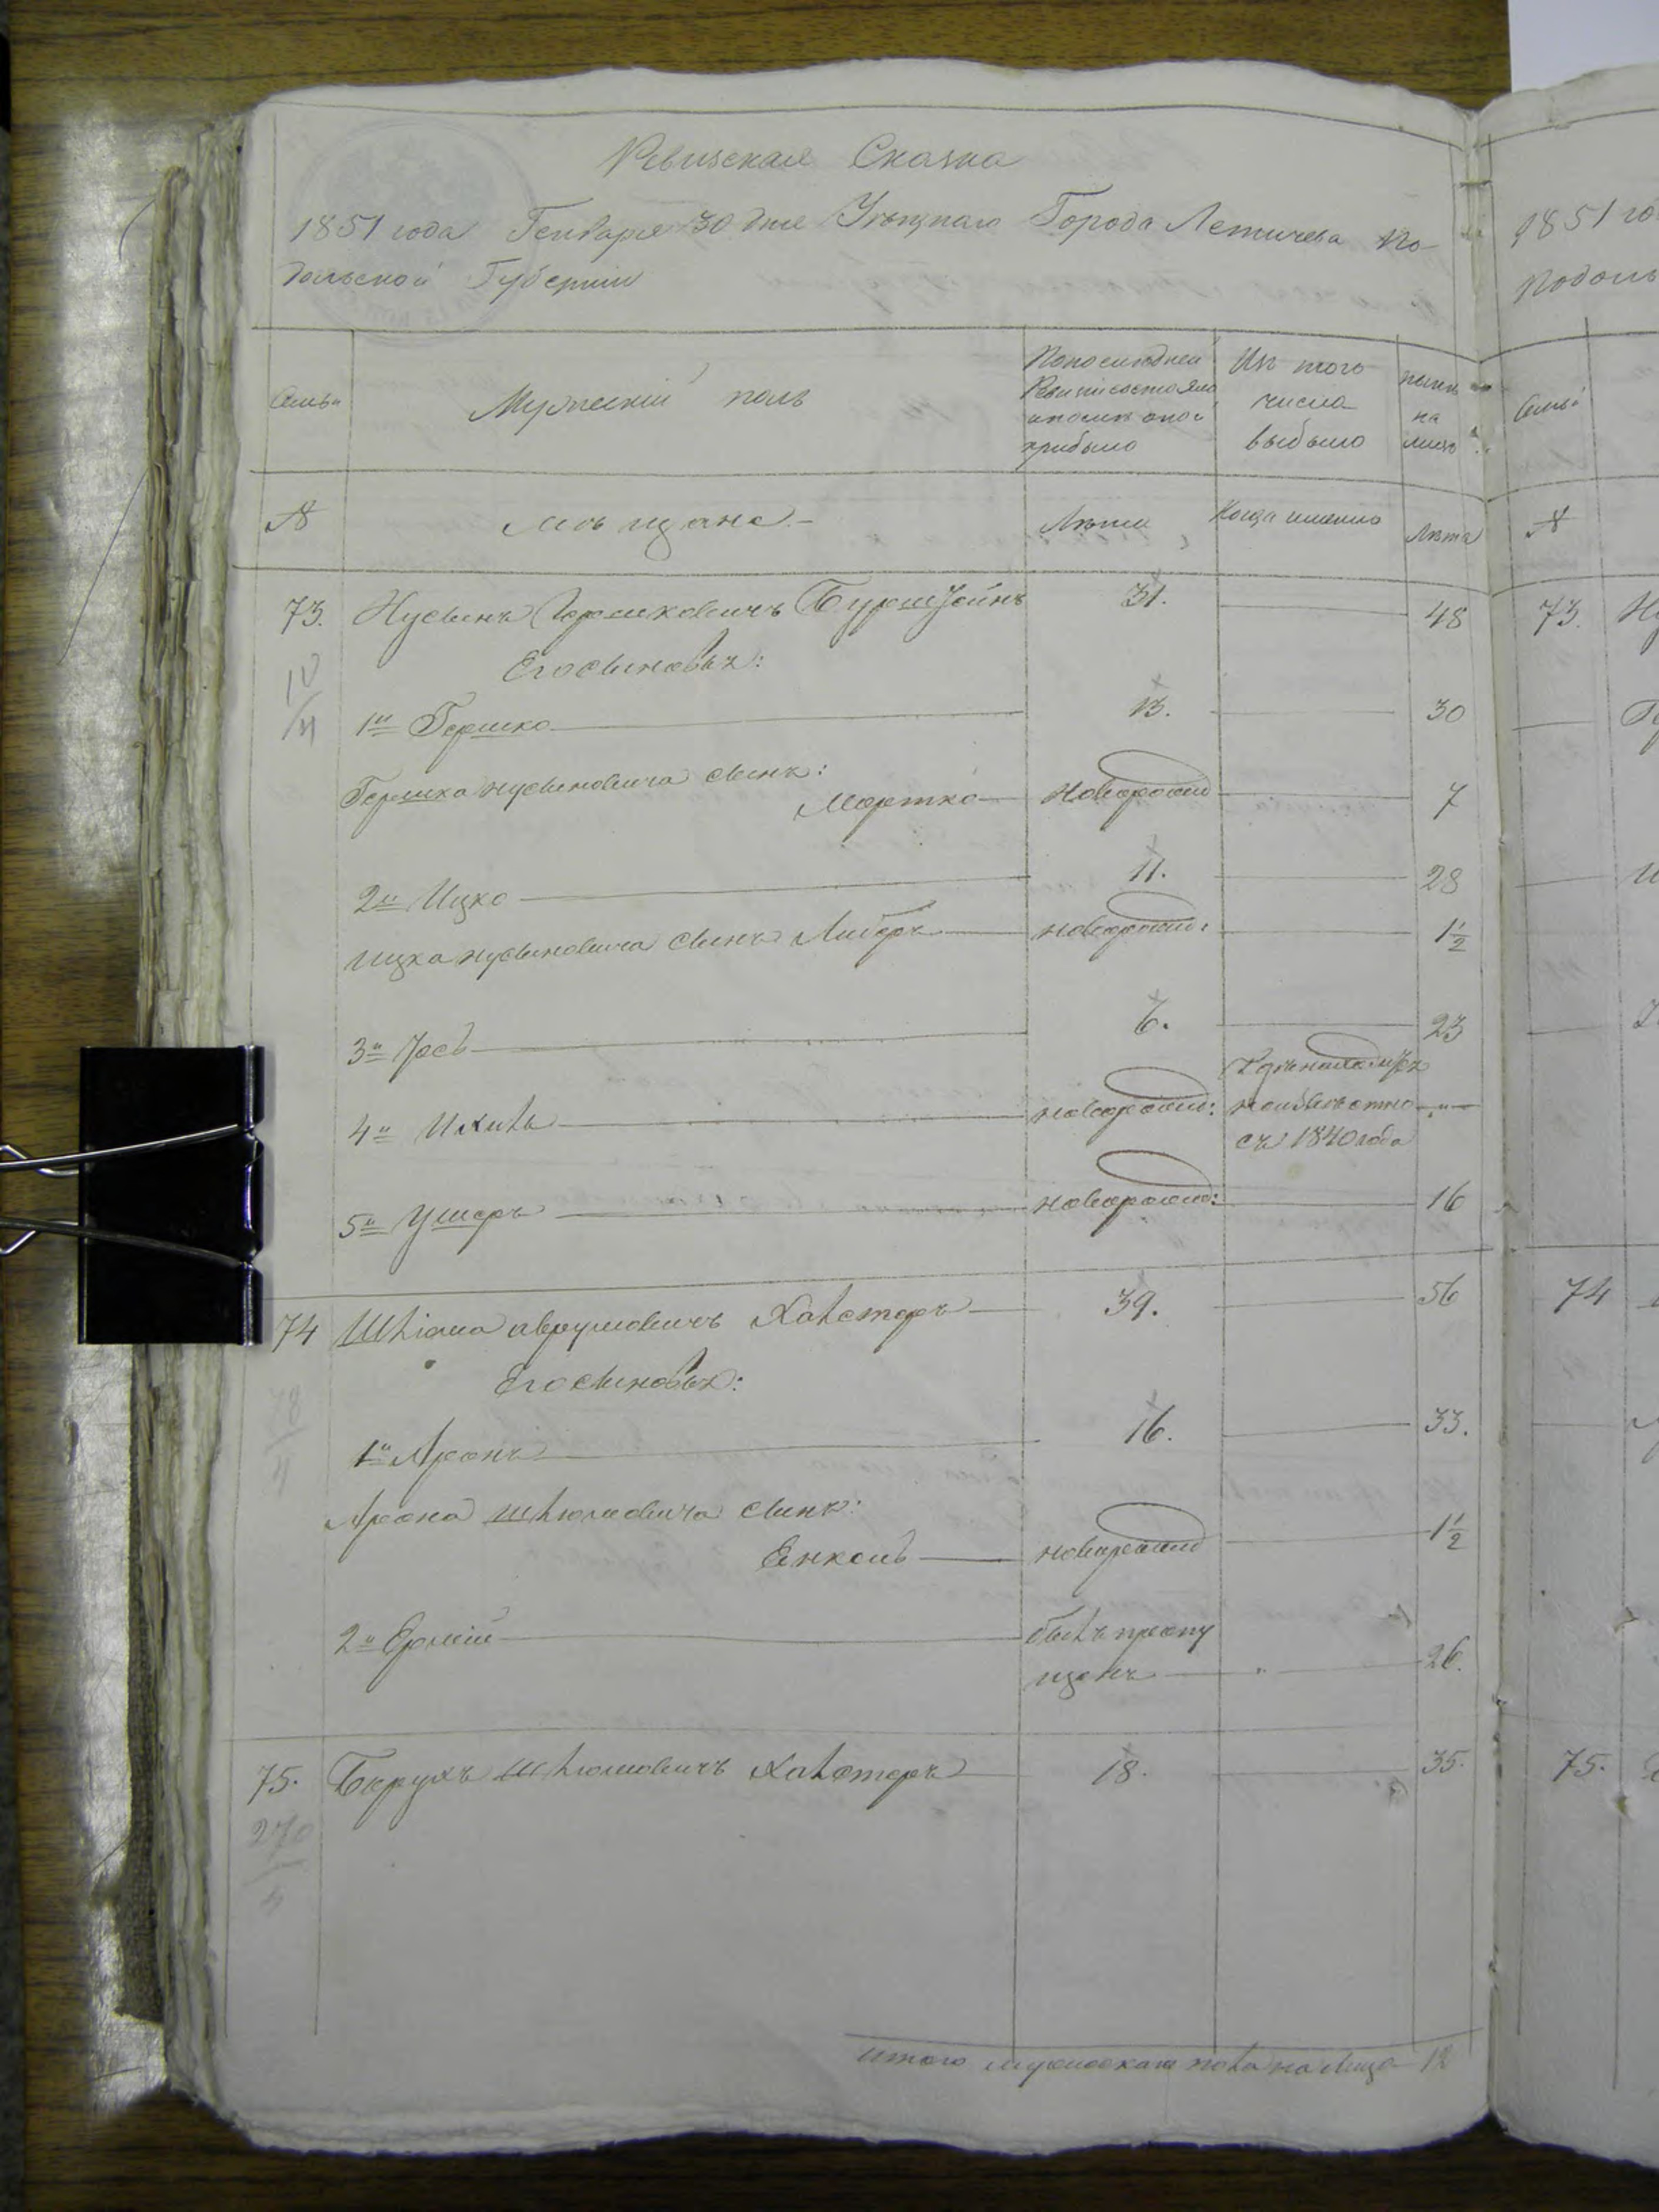 Ревизская Сказка
1851 года Генваря 30 дня Уѣзднаго Города Летичева По-
дольской Губерніи
Семьи
Мужескій полъ
По последней
Ревизіи состояло
и после оной
прибыло
Изъ того
числа
выбыло
ныне
на
лицо
№
мѣщане.-
Лѣта
Когда именно
Лѣта
73. Нусынъ Гершковичъ Бурштейнъ 31. 48
Его сыновья:
1й Гершко 13. 30
Гершка Нусыновича сынъ:
Мортко новорожд 7
2й Ицко 11. 28
Ицка Нусыновича сынъ Либеръ новорожд: 1½
3й Іось 6. 23
4й Ихилъ новорожд:
съ 1840 года
5й Ушеръ новорожд: 16
74 Шліома Аврумовичъ Халстеръ 39. 56
Его сыновья:
1й Аронъ 16. 33.
Арона Шліомовича сынъ:
Енкель новорожд 1½
2й былъ пропу
щенъ " 26.
75. Борухъ Шліомовичъ Халстеръ 18. 35.
270
итого мужескаго пола на лицо 12
1851 го
Подоль
Семьи
№
73. Ну
74
75.